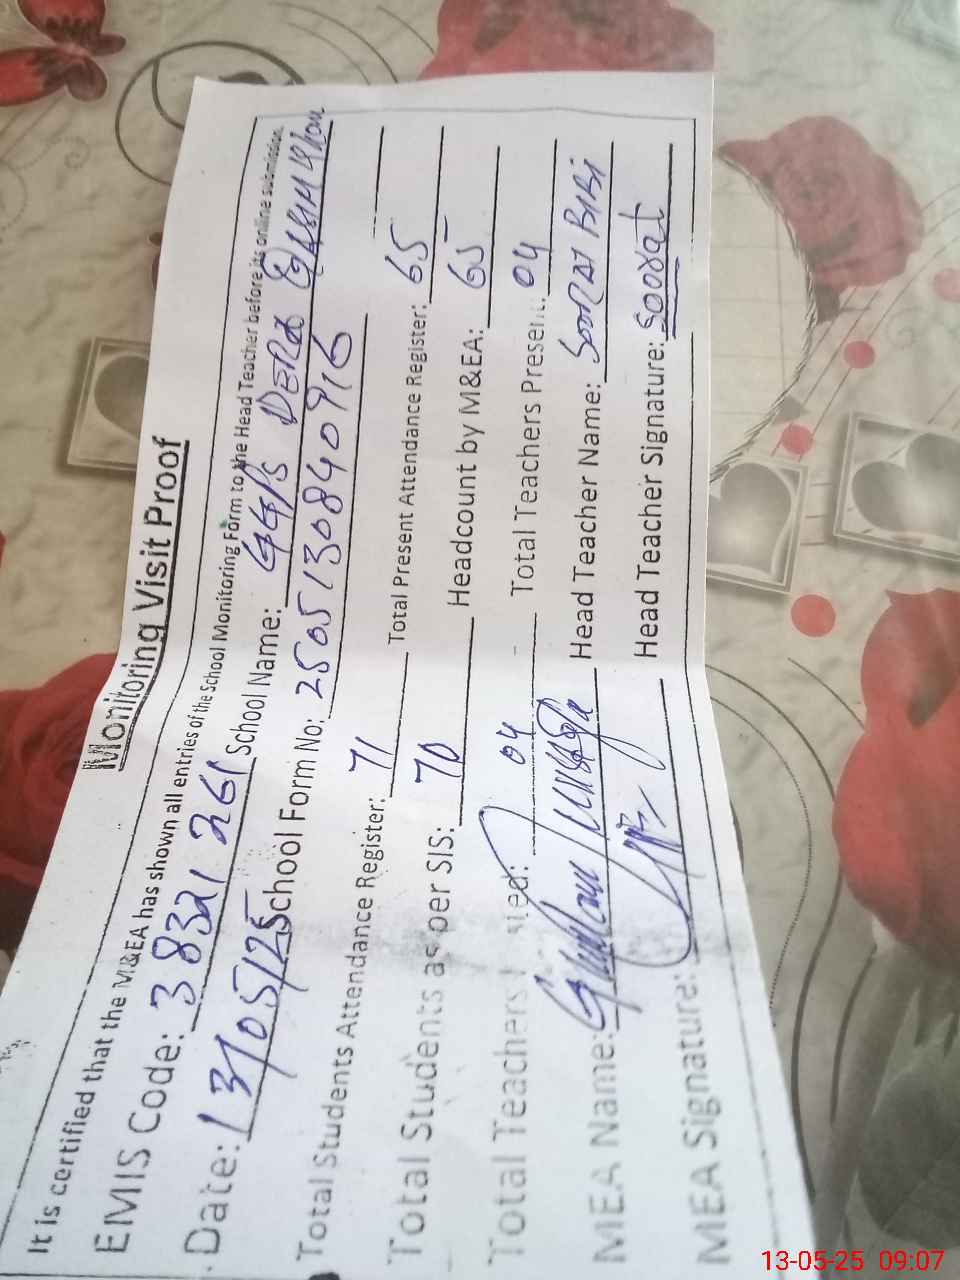 Monitoring Visit Proof
It is certified that the M&EA has shown all entries of the School Monitoring Form to the Head Teacher before its online submission.
EMIS Code: 38321261 School Name: GGPS DERA
Date: 13/05/25 School Form No: 2505130840916
Total Students Attendance Register: 71 Total Present Attendance Register: 65
Total Students as per SIS: 70 Headcount by M&EA: 65
Total Teachers 04 Total Teachers Present: 04
MEA Name: Ghulam Head Teacher Name: BIBI
MEA Signature: Head Teacher Signature: Soorat
13-05-25 09:07